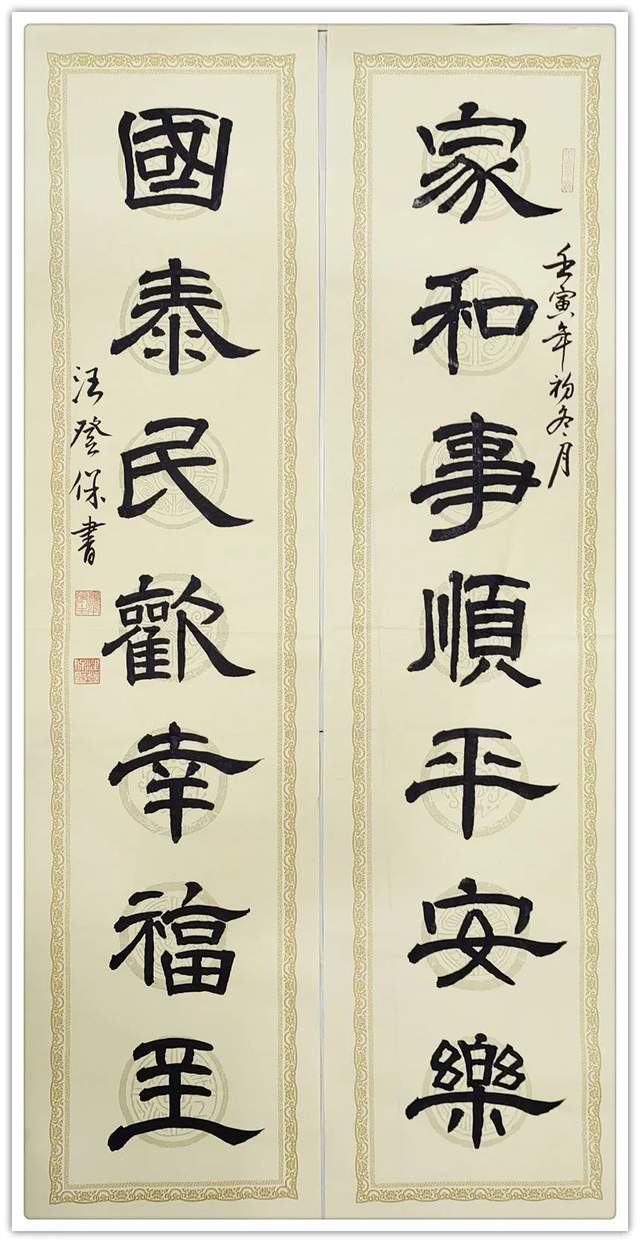 家和事順平安樂
壬寅年初冬月
國泰民歡幸福至
汪登保書